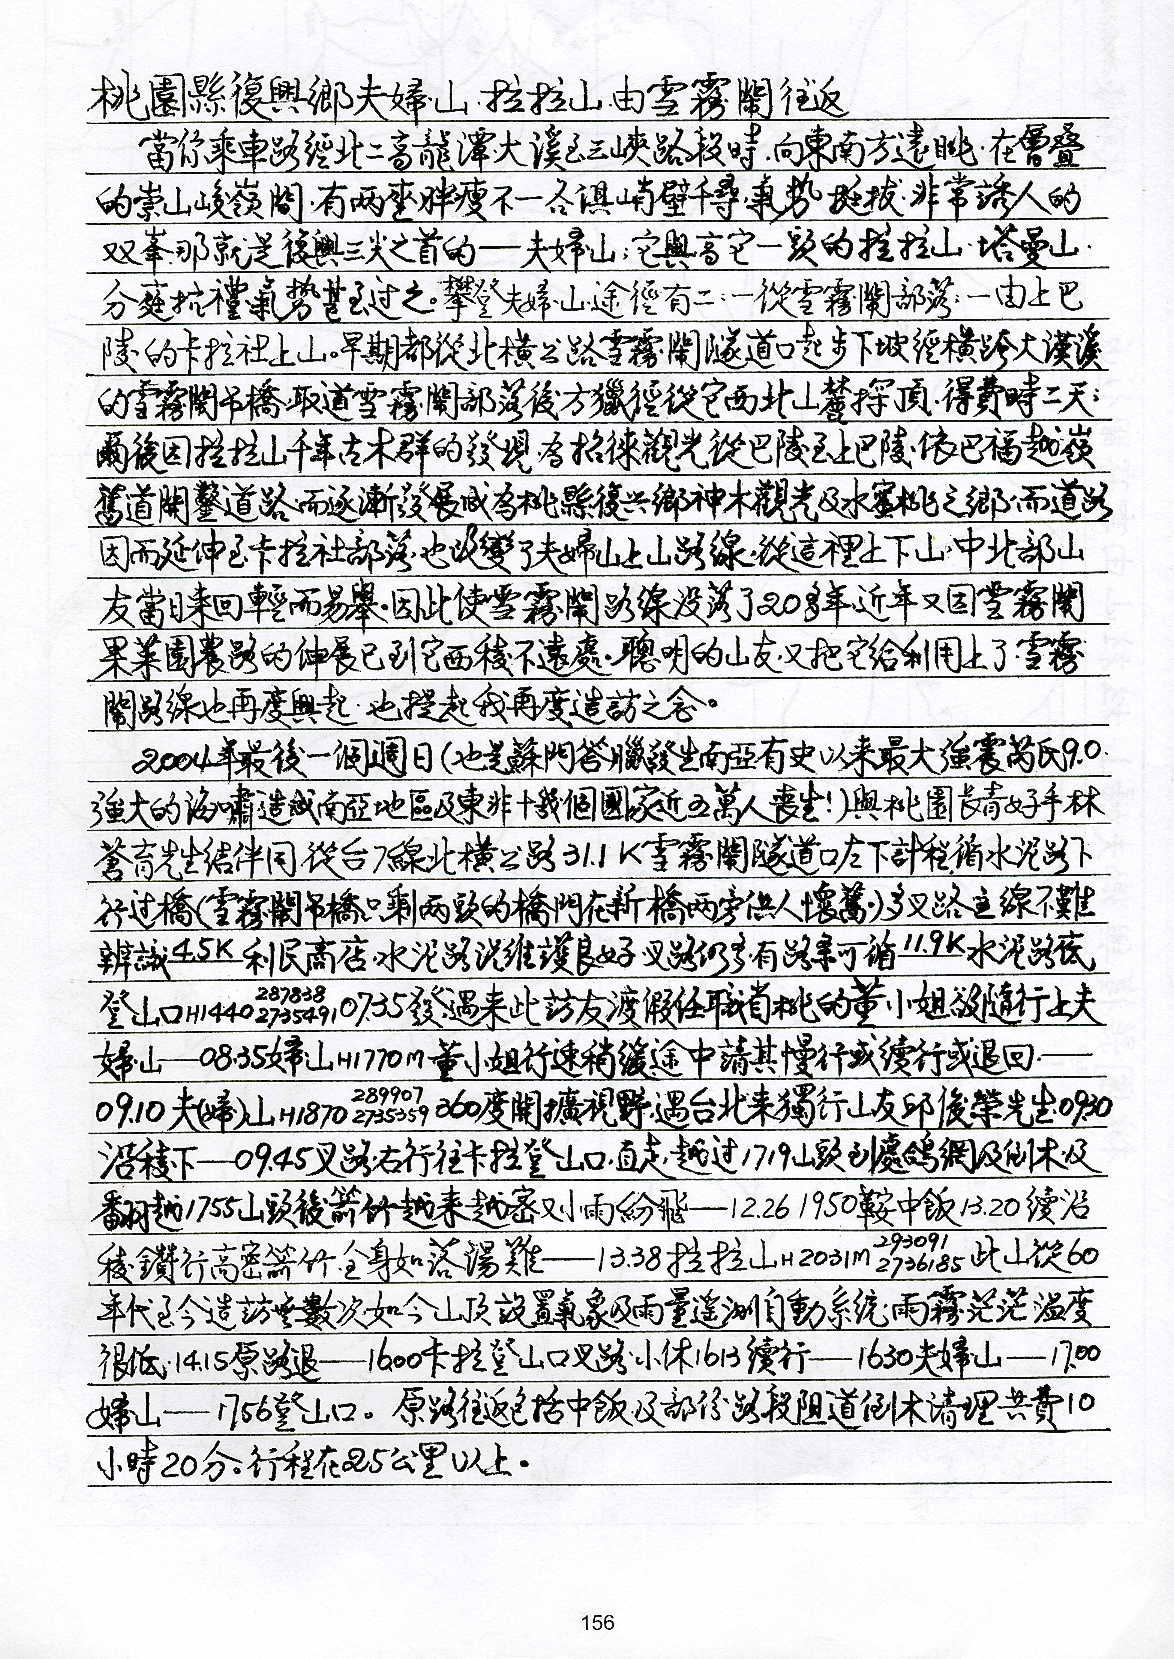 桃園縣復興鄉夫婦山.拉拉山.由雪霧鬧往返
當你乘車路經北二高龍潭.大溪至三峽路段時.向東南方遠眺.在層疊
的崇山峻嶺間.有兩座胖瘦不一各俱峭壁千尋.氣勢挺拔.非常誘人的
双峯.那就是復興三尖之首的——夫婦山;它與高它一頭的拉拉山.塔曼山.
分庭抗禮氣勢甚至過之。攀登夫婦山.途徑有二:一從雪霧鬧部落;一由上巴
陵的卡拉社上山。早期都從北橫公路雪霧鬧隧道口起步下坡經橫跨大漢溪
的雪霧鬧吊橋.取道雪霧鬧部落後方獵徑從它西北山麓探頂.得費時二天;
爾後因拉拉山千年古木群的發現.為招徠觀光從巴陵至上巴陵.依巴福越嶺
舊道開鑿道路.而逐漸發展成為桃縣復兴鄉神木觀光及水蜜桃之鄉.而道路
因而延伸至卡拉社部落.也改變了夫婦山上山路線.從這裡上下山.中北部山
友當日来回輕而易舉.因此使雪霧鬧路線没落了20多年.近年又因雪霧鬧
果菜園農路的伸展已到它西稜不遠處.聰明的山友.又把它給利用上了.雪霧
鬧路線也再度興起.也提起我再度造訪之念。
2004年最後一個週日(也是蘇門答臘發生南亞有史以来最大強震芮氏9.0.
強大的海嘯造成南亞地區及東非十幾個國家近五萬人喪生!)與桃園長青好手林
蒼育先生結伴同從台7線北橫公路31.1K雪霧鬧隧道口左下計程.循水泥路下
行过橋(雪霧鬧吊橋只剩兩頭的橋門在新橋兩旁供人懷舊)多叉路主線不難
辨識4.5K利民商店.水泥路況維護良好.叉路仍多.有路条可循——11.9K水泥路底
登山口H1440 287838 2735491 07.35發.遇来此訪友渡假任職省桃的董小姐欲隨行上夫
婦山——08.35婦山H1770M董小姐行速稍緩途中請其慢行或續行或退回.——
09.10夫(婦)山H1870 289907 2735359 360度開擴視野.遇台北来獨行山友邱俊榮先生.09.30
沿稜下——09.45叉路.右行往卡拉登山口.直走.越过1719山頭到處鴿網及倒木及
翻越1755山頭後箭竹越来越密又小雨紛飛——12.26 1950鞍中飯13.20續沿
稜鑽行高密箭竹.全身如落湯雞——13.38拉拉山H2031M 293091 2736185此山從60
年代至今造訪無數次.如今山頂設置氣象及雨量遙測自動系統.雨霧茫茫溫度
很低.14.15原路退——16.00卡拉登山口叉路.小休16.13續行——16.30夫婦山——17.00
婦山——17.56登山口。原路往返包括中飯.及部份路段阻道倒木清理.共費10
小時20分。行程在25公里以上。
156